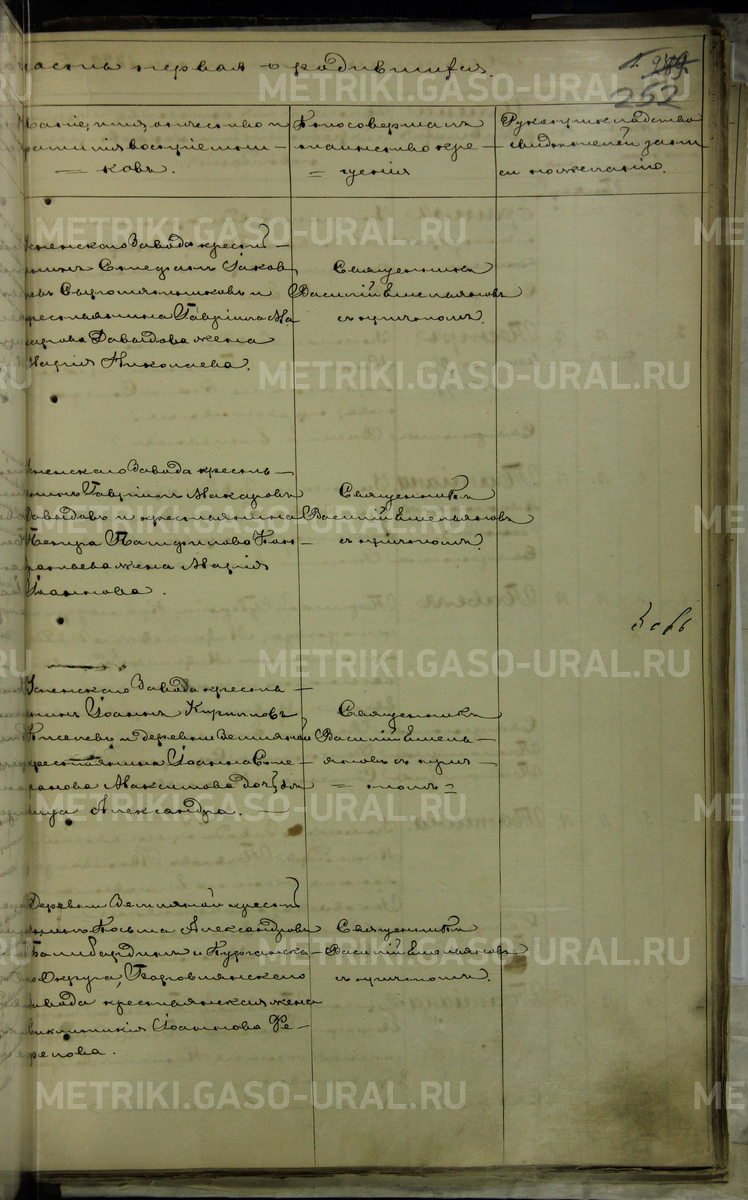 часть первая о родившихся.
249.
252
Званіе, имя, отчество и
фамилія воспріемни-
ковъ.
Кто совершалъ
таинство кре-
щенія
Рукоприкладство
свидѣтелей запи-
си по желанію.
Успенскаго Завода крестья-
нинъ Стефанъ Іаков-
левъ и
крестьянина Гавріила Ма-
карова Давыдова жена
Марія Николаева.
Священникъ
Василій Емельяновъ
съ причтомъ.
Успенскаго Завода крестья-
нинъ Гавріилъ Макаровъ
Давыдовъ и крестьянина
Петра Панфилова
жена Марія
Іоаннова.
Священникъ
Василій Емельяновъ
съ причтомъ.
Успенскаго Завода крестья-
нинъ Іоаннъ Кириловъ
Киселевъ и деревни Земляной
крестьянина Іоанна Сте-
фанова Максимова дочь дѣ-
вица Александра.
Священникъ
Василій Емель-
яновъ съ прич-
томъ
Деревни Земляной крестья-
нинъ Косьма Александровъ
и Курганска-
го Округа,
завода крестьянская жена
Іоаннова Фе-
Священникъ
Василій Емельяновъ
съ причтомъ.
METRIKI.GASO-URAL.RU